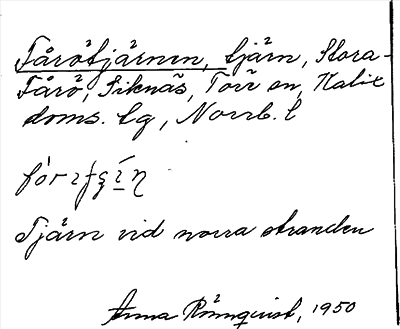 Fårötjärnen, tjärn, Stora-
Fårö, Siknäs, Töre sn, Kalix
doms. tg, Norrb. l
Tjärn vid norra stranden
Anna Rönnqvist, 1950